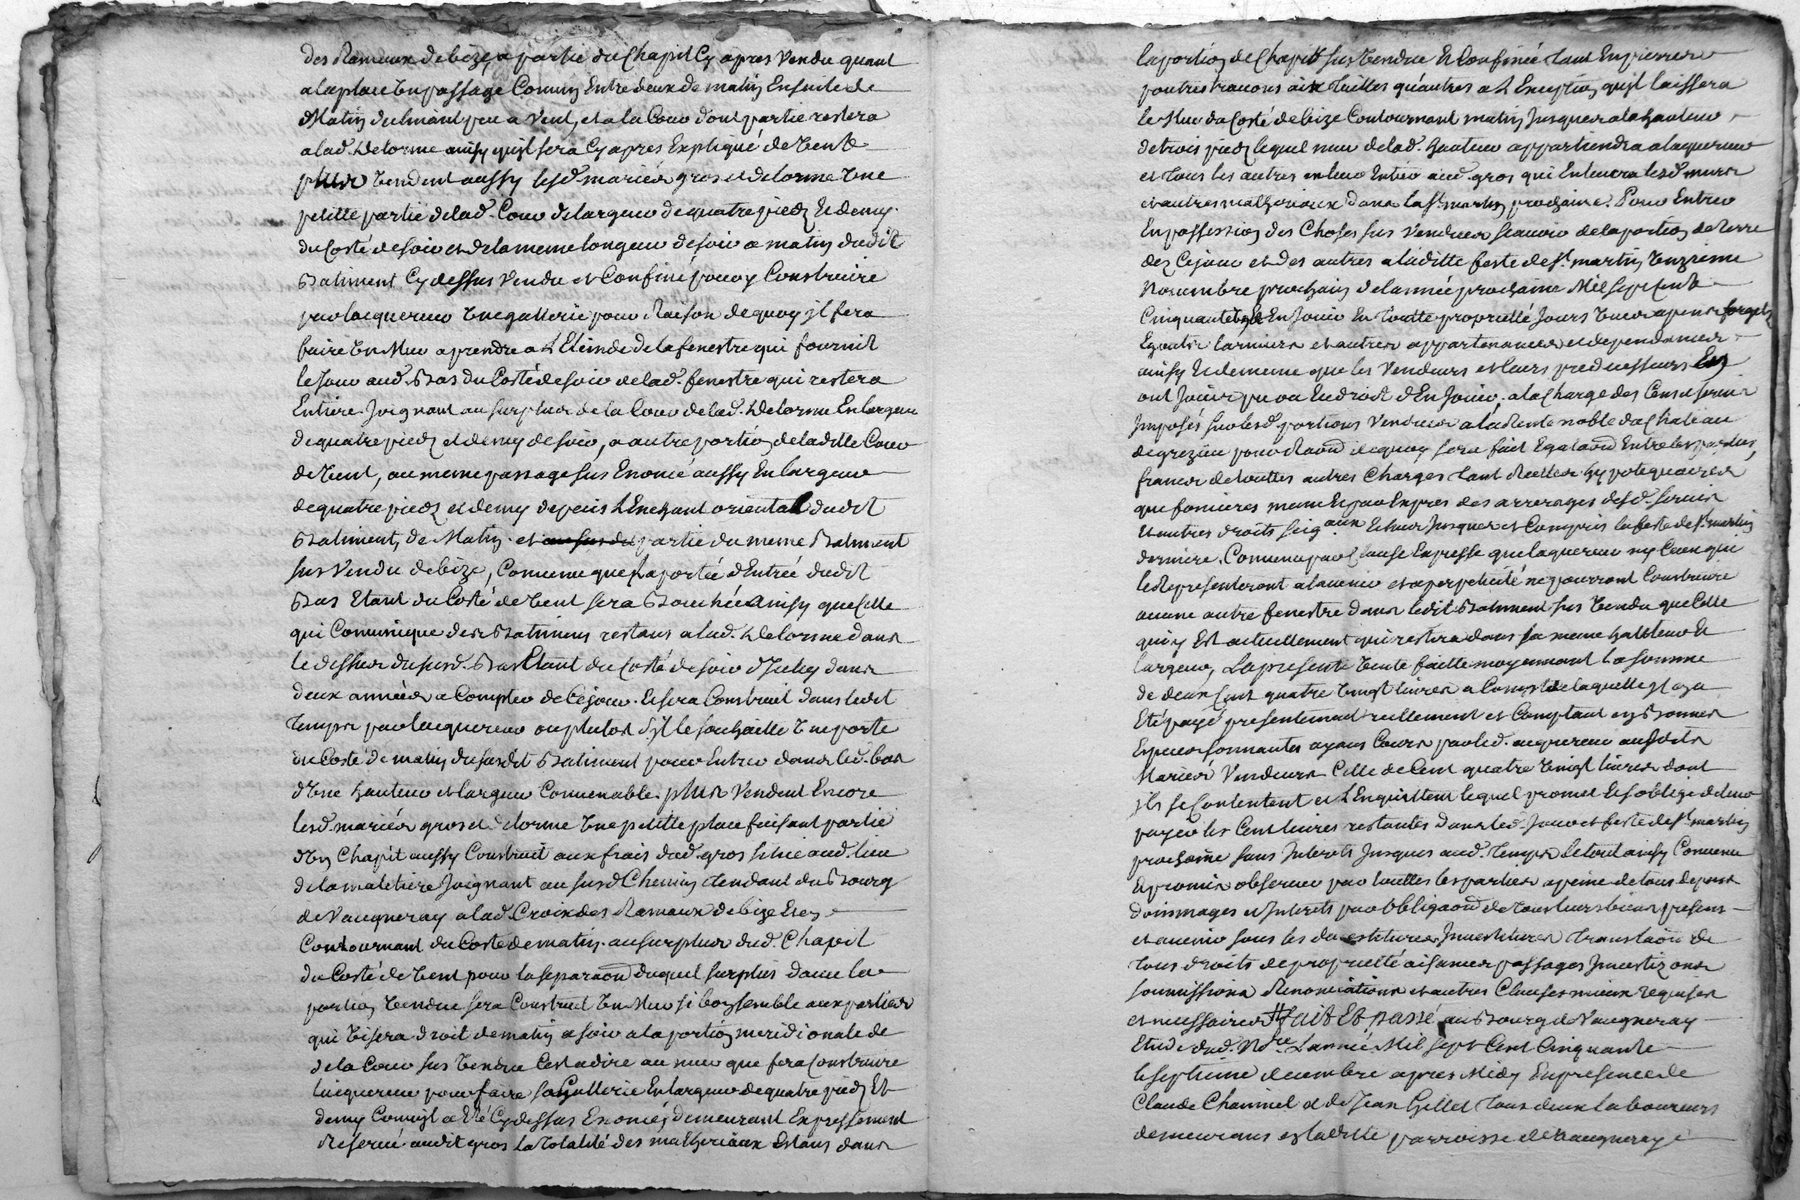 des Rameaux de bize, a partie du Chapit Cy apres Vendu quant
a la place Un passage Comun Entre deux de matin Ensuite de
Matin declinant peu a Vent, et a la Cour dont partie restera
a lad. Delorme ainsy quyl sera Cy apres Expliqué de Vent
plus Vendent aussy lesd. mariés gros et delorme Une
petitte partie de lad. Cour de largeur de quatre pieds Et demy
du Costé de soir et de la meme longeur de soir a matin dudit
Batiment Cy dessus Vendu et Confiné pour y Construire
par lacquereur Une gallerie pour Raison de quoy jl fera
faire Un Mur a prendre a L'Eteinde de la fenestre qui fournit
le Jour aud. Bas du Costé de soir de lad. fenestre qui restera
Entiere Joignant au surplus de la Cour de lad. Delorme En largeur
de quatre pieds et demy de soir, a autre portion de laditte Cour
de Vent, au meme passage sus Enoncé aussy En largeur
de quatre pieds et demy depuis L'Enchant oriental dudit
Batiment, de Matin et partie du meme Batiment
sus Vendu de bize, Convenu que La portée d'Entrée dudit
Bas Etant du Costé de Vent sera Bouchée Ainsy que Celle
qui Comunique des Batimens restans a lad. Delorme dans
le dessus du susd. Bas Etant du Costé de soir d'Jceluy dans
deux années a Compter de Cejour. Et sera Construit dans ledit
temps par lacquereur ou plutot s'jl le souhaitte Une porte
du Costé de matin du susdit Batiment pour Entrer dans led. bas
d'Une hauteur et largeur Convenable. plus Vendent Encore
lesd. mariés gros et delorme Une petitte place faisant partie
d'Un Chapit aussy Construit aux frais dud. gros situé aud. lieu
de la maletiere Joignant au susd Chemin tendant du Bourg
de Vaugneray a lad. Croix des Rameaux de bize Et en
Contournant du Costé de matin. au surplus dud. Chapit
du Costé de Vent pour la separaōn duquel surplus dans la
portion Vendue sera Construit Un Mur si bon semble aux parties
qui Visera droit de matin a soir a la portion meridionale de
de la Cour sus Vendue Cest a dire au mur que fera Construire
lacquereur pour faire sa Gallerie En largeur de quatre pieds Et
demy Comme jl a Eté Cy dessus Enoncé, demeurant Expressement
Reservé audit gros la totalité des matheriaux Estans dans
la portion de Chapit sus Vendue Et Confinée tant En pierres
poutres travons aix tuilles qu'autres a L'Exception quyl laissera
le Mur du Costé de bize Contournant matin Jusques a la hauteur
de trois pieds lequel mur de lad. hauteur appartiendra a lacquereur
et tous les autres en leur Entier aud. gros qui Enlevera lesd. murs
et autres matheriaux dans la St. martin prochaine. Pour Entrer
En possession des Choses sus Vendues scavoir de la portion de terre
dez Cejour et des autres a laditte feste de St. martin Unzieme
Novembre prochain de lannée prochaine Mil sept Cent
Cinquante En Jouir En toutte proprietté Jours Vues
Egouts larmiers et autres appartenances et dependances
ainsy Et de meme que les Vendeurs et leurs predecesseurs En
ont Joüir pu ou Eu droit d'En Jouir. a la Charge des Cens servis
Jmposés sur lesd. portions Vendues a la Rente noble du Chateau
de grezieu pour Raōn de quoy sera fait Egalaōn Entre les parties,
francs de touttes autres Charges tant Reelles hypotequaires
que fonieres meme Et par Expres des arrerages desd. servis
Et autres droits seigaux Echus Jusques et Compris la feste de St. martin
derniere. Convenu par Clause Expresse que lacquereur ny Ceux qui
le Representeront a lavenir et a perpetuité ne pourront Construire
aucune autre fenestre dans ledit Batiment sus Vendu que Celle
quy y Est actuellement qui restera dans sa meme hautteur Et
largeur, La presente Vente faitte moyennant la somme
de deux Cent quatre Vingt livres a Compte de laquelle jl a
Eté payé presentement reellement et Comptant en Bonnes
Especes sonnantes ayans Cours par led. acquereur ausdits
Mariés Vendeurs Celle de Cent quatre Vingt livres dont
jls se Contentent et L'Enquittent lequel promet Et s'oblige de leur
payer les Cent livres restantes dans led. Jour et feste de St. martin
prochaine sans Jnterets Jusques aud. temps Le tout ainsy Convenu
Et promis observer par touttes les parties a peine de tous depens
dommages et Jnterets par Obligaōn de tous leurs biens presens
et avenir sous les devestitures Jnvestitures translaōn de
tous droits de proprietté aisances passages Jnvestizons
soumissions Renonciations et autres Clauses mieux requises
et necessaires fait Et passé au Bourg de Vaugneray
Etude dud. Nōre L'année Mil sept Cent Cinquante
le septieme decembre apres Midy En presence de
Claude Chammel et de Jean Gillet tous deux laboureurs
demeurans en laditte parroisse de Vaugneray